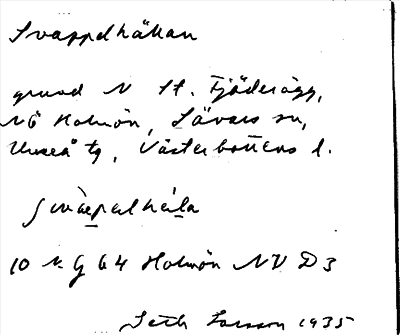 Svappelhällan
grund N St. Fjäderägg,
NÖ Holmön, Sävars sn,
Umeå tg, Västerbottens l.
10 k G 64 Holmön NV D3
Seth Larsson 1935